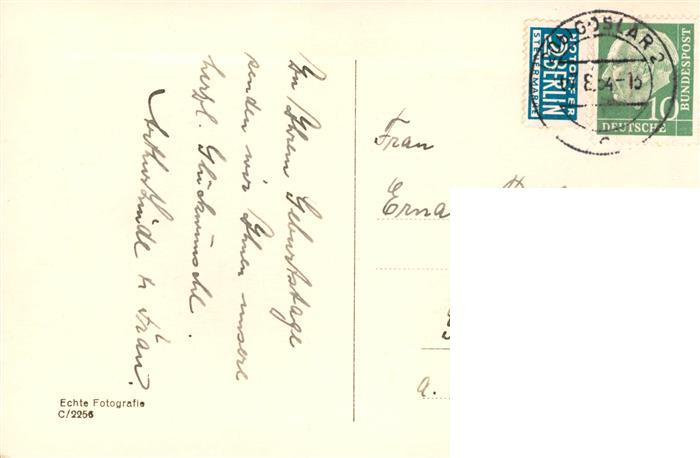 Zu Ihrem Geburtstage
senden wir Ihnen unsere
herzl. Glückwünsche.
u. Frau.
Echte Fotografie
C/2256
NOTOPFER
2 BERLIN
STEUERMARKE
GOSLAR 2
54-15
c
10
DEUTSCHE
BUNDESPOST
Frau
Erna
a.